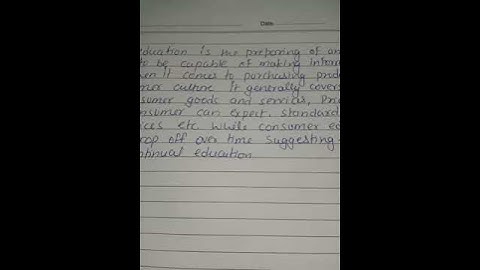 Date
education is the preparing of an
to be capable of making inform
when it comes to purchasing prod
mer culture It generally covers
sumer goods and services, Pric
onsumer can expect, standard
ices etc. While consumer ed
rop off over time suggesting
ontinual education